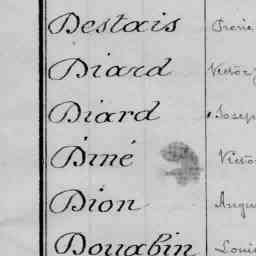 Destais Prosie
Diard Victor
Diard Josep
Diné Victo
Dion Augu
Douabin Louis